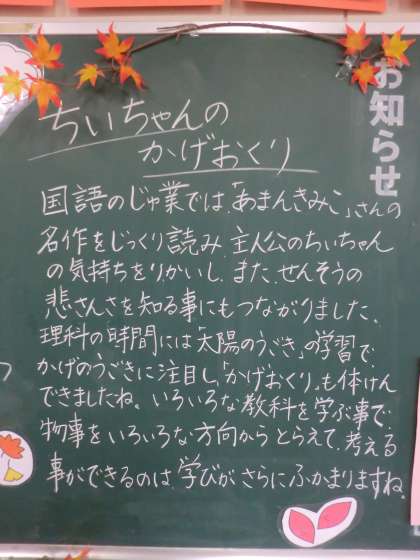 お知らせ
ちいちゃんの
かげおくり
国語のじゅ業では、「あまんきみこ」さんの
名作をじっくり読み、主人公のちいちゃん
の気持ちをりかいし、また、せんそうの
悲さんさを知る事にもつながりました。
理科の時間には「太陽のうごき」の学習で
かげのうごきに注目し、「かげおくり」も体けん
できましたね。いろいろな教科を学ぶ事で、
物事をいろいろな方向からとらえて、考える
事ができるのは、学びがさらにふかまりますね。